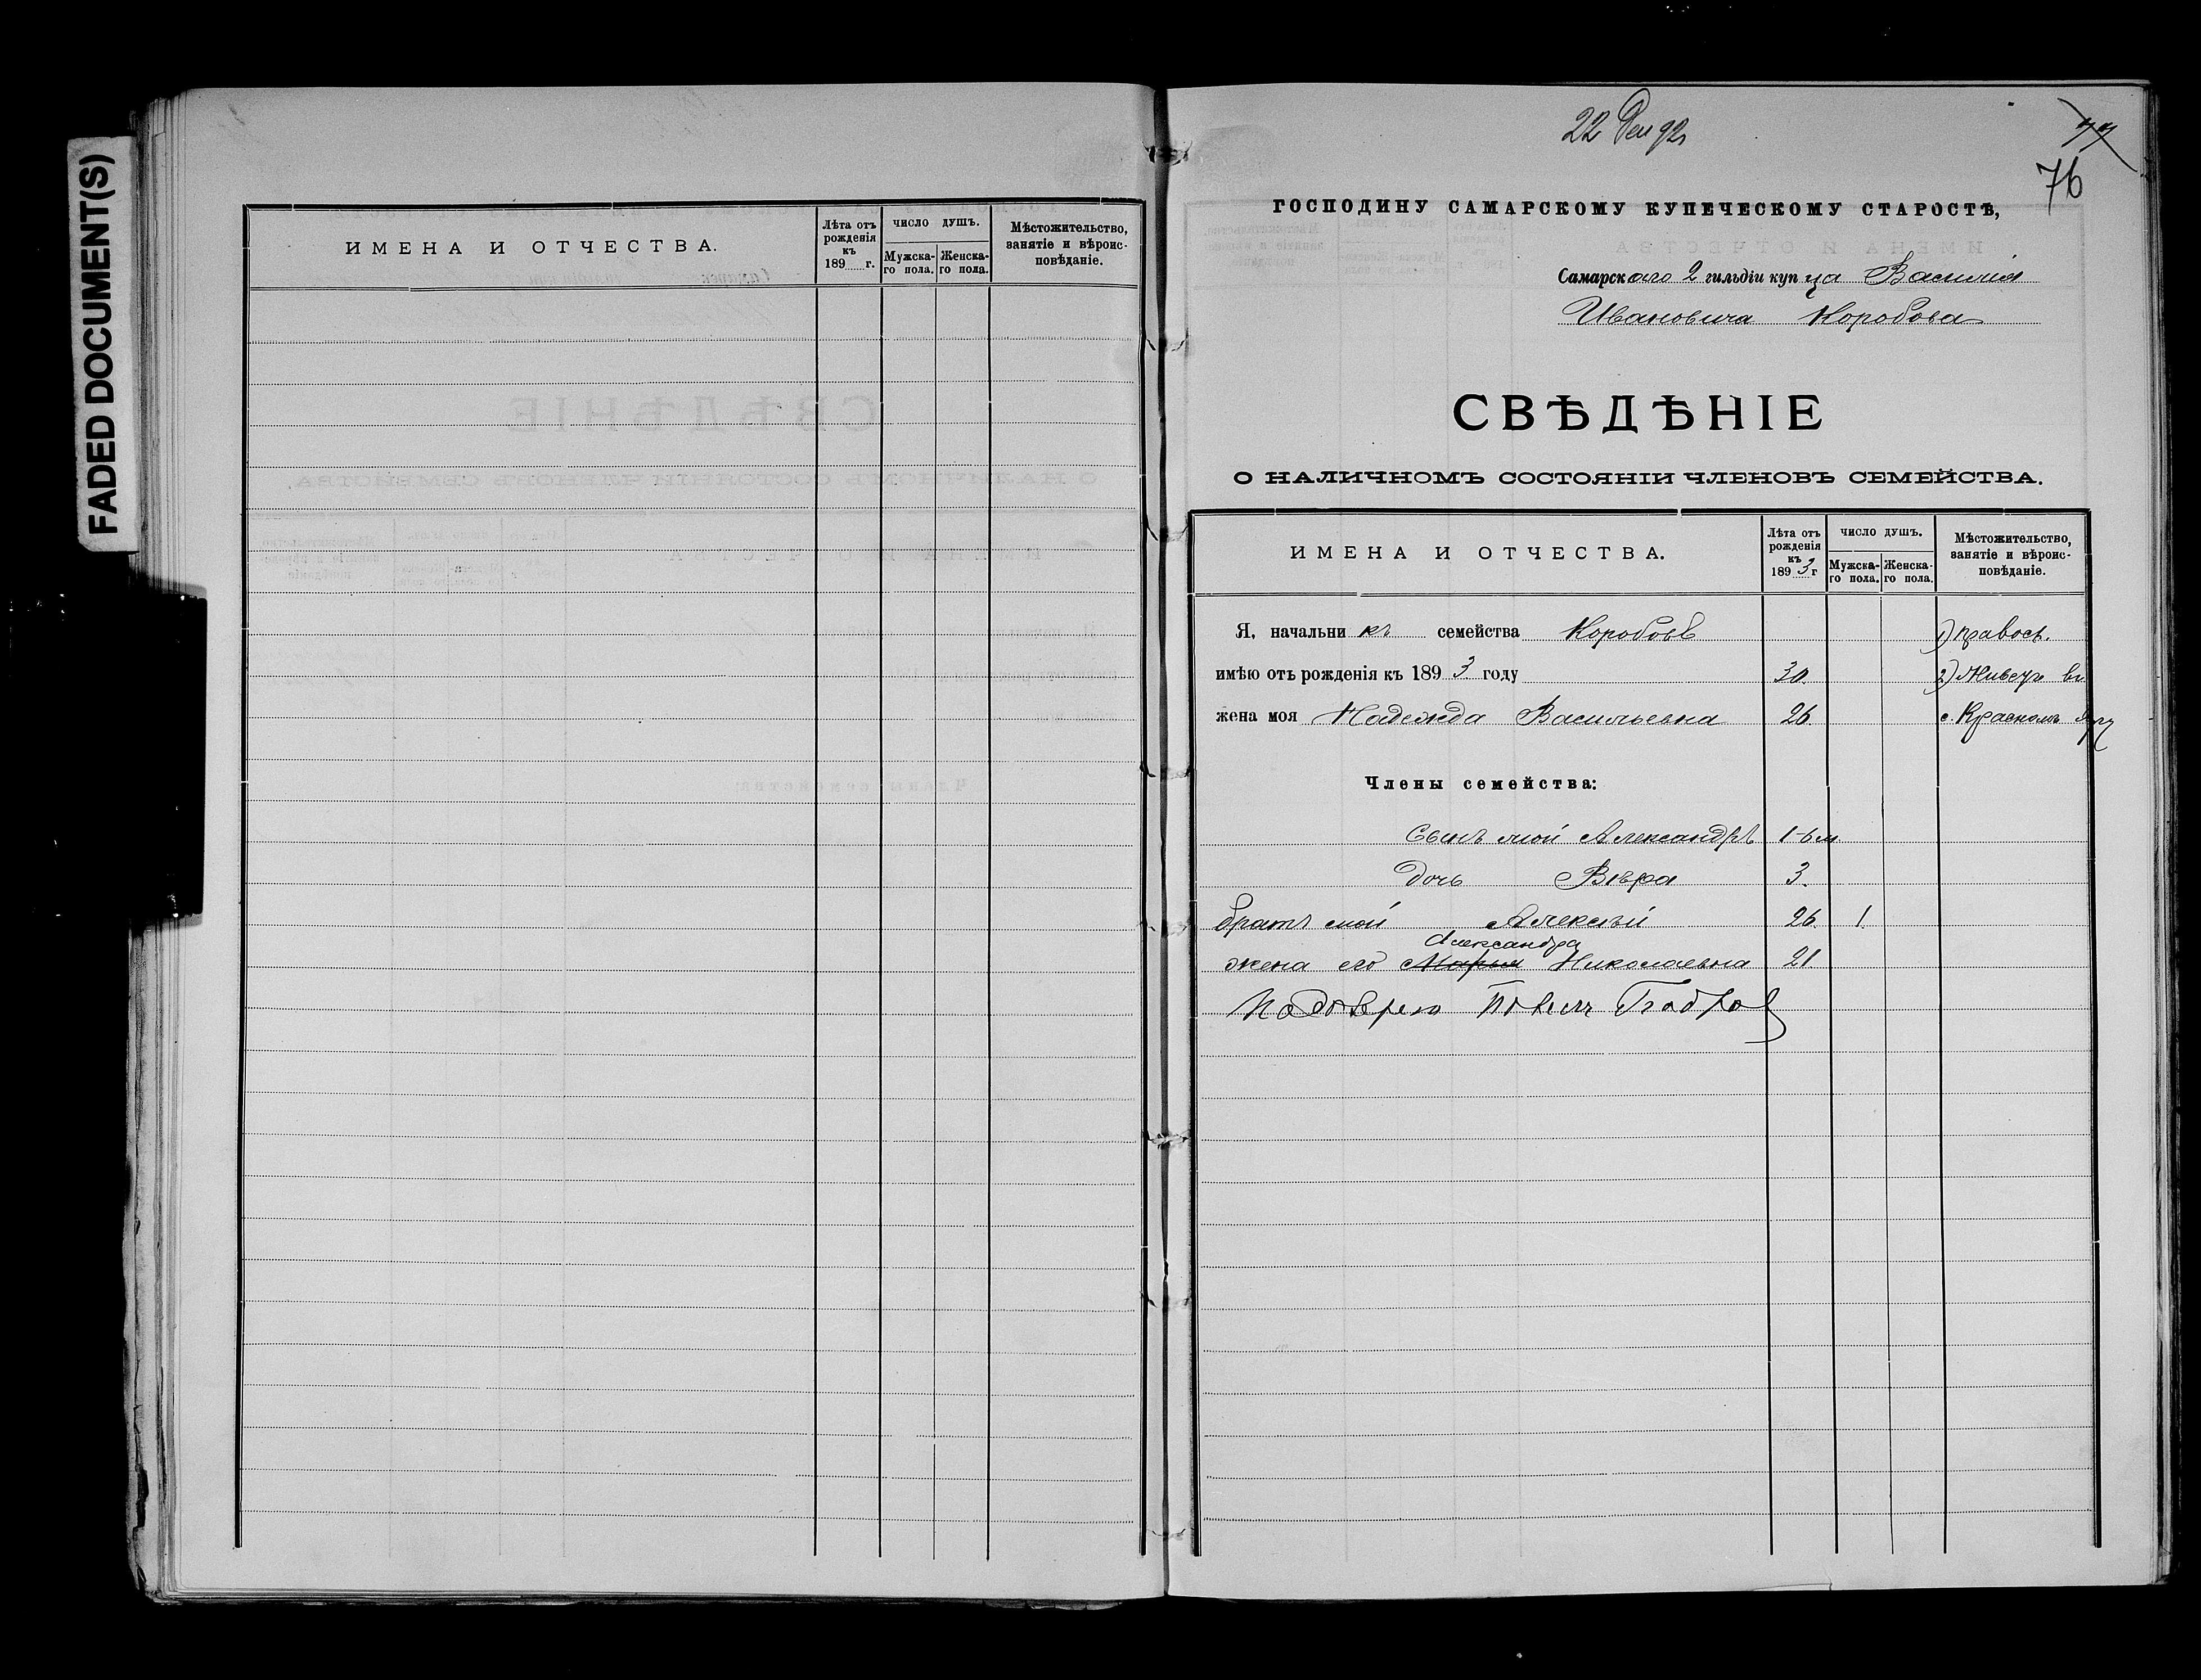 FADED DOCUMENT(S)
ИМЕНА И ОТЧЕСТВА.
Лѣта отъ
рожденія
къ
189 г.
ЧИСЛО ДУШЪ.
Мужска-
го пола.
Женска-
го пола.
Мѣстожительство,
занятіе и вѣроис-
повѣданіе.
22 Дек 92
77
76
ГОСПОДИНУ САМАРСКОМУ КУПЕЧЕСКОМУ СТАРОСТѢ,
Самарскаго 2 гильдіи купца Василія
Ивановича Коробова
СВѢДѢНІЕ
О НАЛИЧНОМЪ СОСТОЯНІИ ЧЛЕНОВЪ СЕМЕЙСТВА.
ИМЕНА И ОТЧЕСТВА.
Лѣта отъ
рожденія
къ
1893 г
ЧИСЛО ДУШЪ.
Мужска-
го пола.
Женска-
го пола.
Мѣстожительство,
занятіе и вѣроис-
повѣданіе.
Я, начальникъ семейства Коробовъ 1) правосл.
имѣю отъ рожденія къ 1893 году 30. 2) Живетъ въ
жена моя Надежда Васильевна 26 с. Красномъ Яру
Члены семейства:
Сынъ мой Александръ 1-6 м.
Дочь Вѣра 3.
братъ мой Алексѣй 26. 1.
Александра
жена его Марья Николаевна 21.